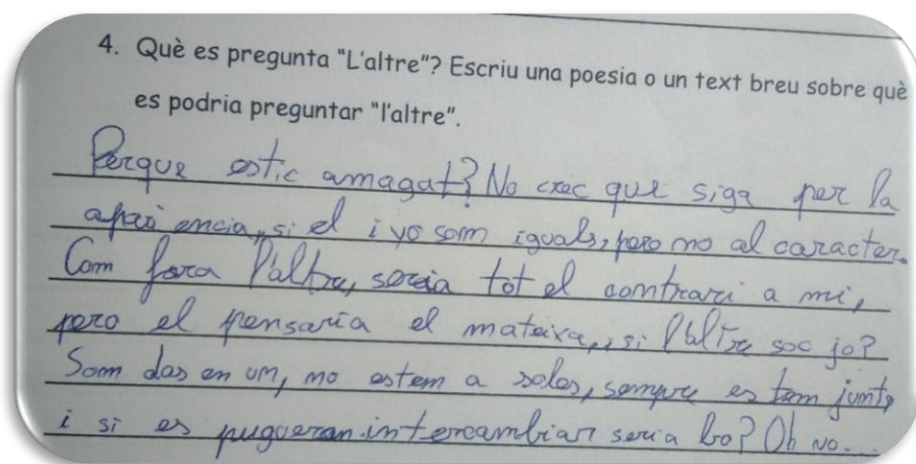 4. Què es pregunta "L'altre"? Escriu una poesia o un text breu sobre què
es podria preguntar "l'altre".
Perque estic amagat? No crec que siga per la
apariencia, si el i yo som iguals, pero no al caracter.
Com fora l'altre, seria tot el contrari a mi,
pero el pensaria el mateixa, i si l'altre soc jo?
Som dos en um, no estem a soles, sempre estem junts
i si es pugueran intercambiar seria bo? Oh no...